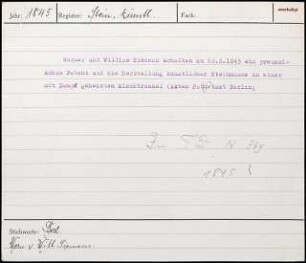 Jahr: 1845 Register: Stein, Künstl. Fach:
Werner und William Siemens erhalten am 10.8.1845 ein preussi-
sches Patent auf die Herstellung künstlicher Steinmasse in einer
mit Dampf geheizten Mischtrommel (Akten Patentamt Berlin)
1845
Stichworte:
Wern. v. Will. Siemens.